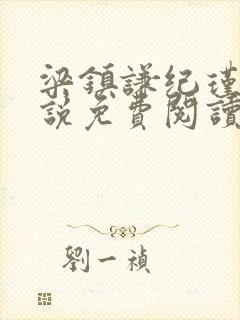 梁鎮謙纪瑾
說免費閱讀
劉一禎